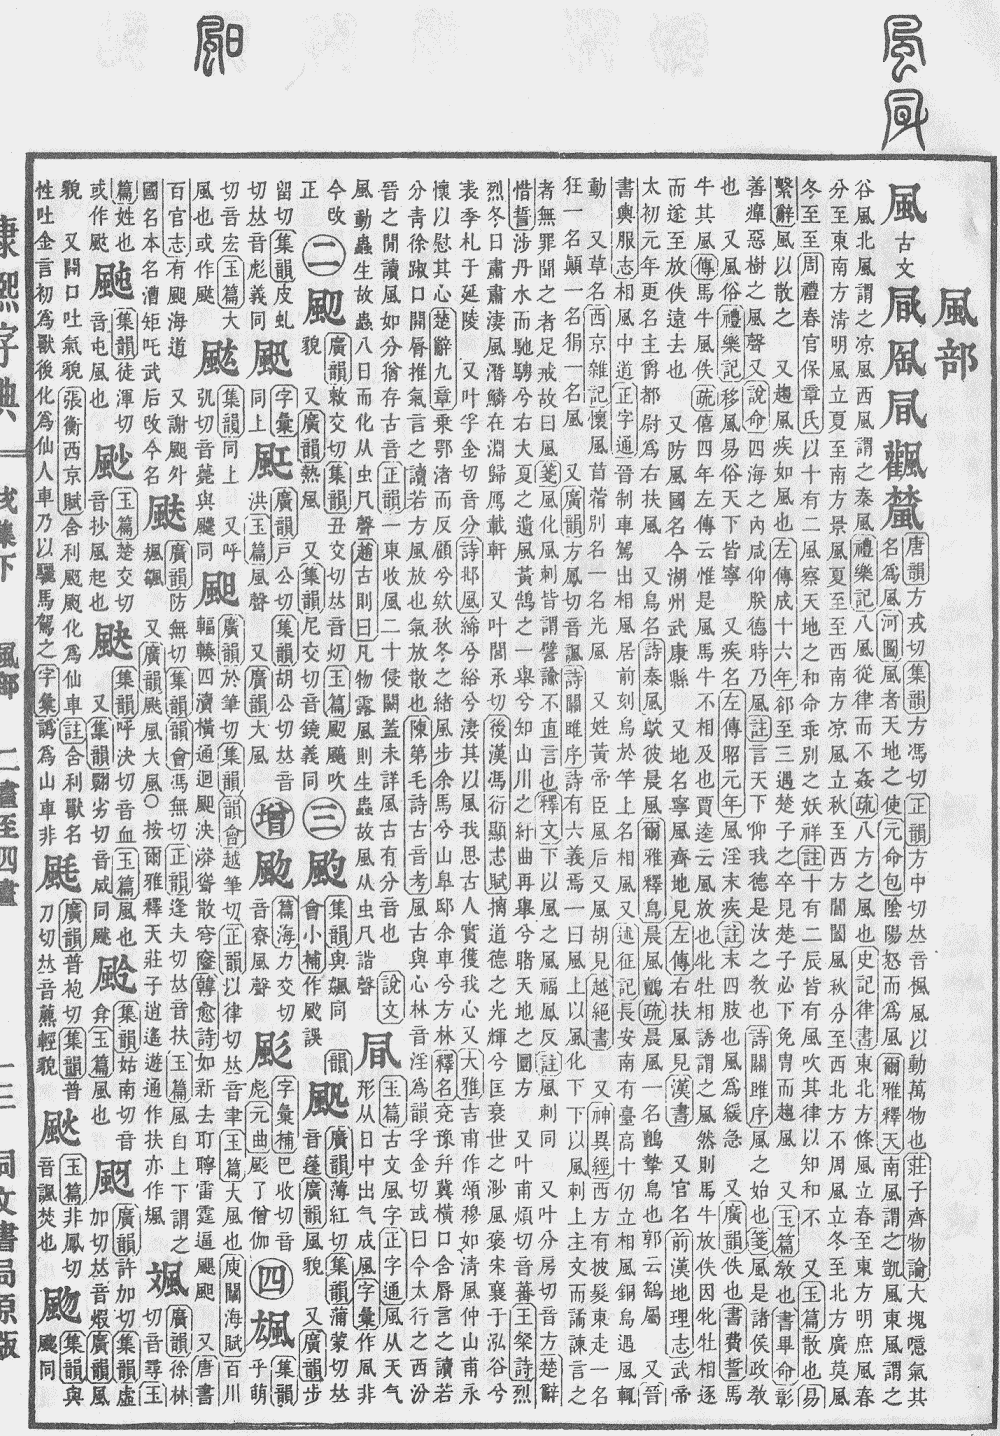 風部
風 古文 凬 𠙊 飌 唐韻方戎切集韻方馮切正韻方中切𠀤音楓風以動萬物也莊子齊物論大塊噫氣其
名爲風河圖風者天地之使元命包陰陽怒而爲風爾雅釋天南風謂之凱風東風謂之
谷風北風謂之凉風西風謂之泰風禮樂記八風從律而不姦疏八方之風也史記律書東北方條風立春至東方明庶風春
分至東南方清明風立夏至南方景風夏至至西南方凉風立秋至西方閶闔風秋分至西北方不周風立冬至北方廣莫風
冬至至周禮春官保章氏以十有二風察天地之和命乖別之妖祥註十有二辰皆有風吹其律以知和不 又玉篇散也易
繫辭風以散之 又趨風疾如風也左傳成十六年郤至三遇楚子之卒見楚子必下免冑而趨風 又玉篇敎也書畢命彰
善癉惡樹之風聲又說命四海之內咸仰朕德時乃風註言天下仰我德是汝之敎也詩關雎序風之始也箋風是諸侯政敎
也 又風俗禮樂記移風易俗天下皆寧 又疾名左傳昭元年風淫末疾註末四肢也風爲緩急 又廣韻佚也書費誓馬
牛其風傳馬牛風佚疏僖四年左傳云惟是風馬牛不相及也賈逵云風放也牝牡相誘謂之風然則馬牛放佚因牝牡相逐
而遂至放佚遠去也 又防風國名今湖州武康縣 又地名寧風齊地見左傳右扶風見漢書 又官名前漢地理志武帝
太初元年更名主爵都尉爲右扶風 又鳥名詩秦風鴥彼晨風爾雅釋鳥晨風鸇疏晨風一名鸇摯鳥也郭云鷂屬 又晉
書輿服志相風中道正字通晉制車駕出相風居前刻烏於竿上名相風又述征記長安南有臺高十仞立相風銅烏遇風輒
動 又草名西京雜記懷風苜蓿別名一名光風 又姓黃帝臣風后又風胡見越絕書 又神異經西方有披髮東走一名
狂一名顚一名狷一名風 又廣韻方鳳切音諷詩關雎序詩有六義焉一曰風上以風化下下以風刺上主文而譎諫言之
者無罪聞之者足戒故曰風箋風化風刺皆謂譬諭不直言也釋文下以風之風福鳳反註風刺同 又叶分房切音方楚辭
惜誓涉丹水而馳騁兮右大夏之遺風黃鵠之一舉兮知山川之紆曲再舉兮睹天地之圜方 又叶甫煩切音蕃王粲詩烈
烈冬日肅肅淒風潛鱗在淵歸鴈載軒 又叶閭承切後漢馮衍顯志賦摛道德之光輝兮匡衰世之眇風褒宋襄于泓谷兮
表季札于延陵 又叶孚金切音分詩邶風絺兮綌兮淒其以風我思古人實獲我心又大雅吉甫作頌穆如清風仲山甫永
懷以慰其心楚辭九章乘鄂渚而反顧兮欸秋冬之緒風步余馬兮山臯邸余車兮方林釋名兗豫幷冀橫口合脣言之讀若
分靑徐踧口開脣推氣言之讀若方風放也氣放散也陳第毛詩古音考風古與心林音淫爲韻字金切或曰今太行之西汾
晉之閒讀風如分猶存古音正韻一東收風二十侵闕蓋未詳風古有分音也 說文
風動蟲生故蟲八日而化从虫凡聲趙古則曰凡物露風則生蟲故風从虫凡諧聲
凬 玉篇古文風字正字通風从天气
形从日中出气成風字彙作凬非
今改正
二
廣韻敕交切集韻丑交切𠀤音 玉篇 吹
貌 又廣韻熱風 又集韻尼交切音鐃義同
三
集韻與颿同
會小補作颰誤
廣韻薄紅切集韻蒲蒙切𠀤
音蓬廣韻風貌 又廣韻步
留切集韻皮虬
切𠀤音彪義同
颩 字彙
同上
䫹 廣韻戸公切集韻胡公切𠀤音
洪玉篇風聲 又廣韻大風
增
篇海力交切
音寮風聲
字彙補巴收切音
彪元曲 了僧伽
四
颽 集韻
乎萌
切音宏玉篇大
風也或作䫺
䫺 集韻同上 又呼
宏切音薨與䬝同
颶 廣韻於筆切集韻韻會越筆切正韻以律切𠀤音聿玉篇大風也庾闡海賦百川
輻輳四瀆橫通迴䬂泱漭聳散穹窿韓愈詩如新去耵聹雷霆逼䬂䬂 又唐書
百官志有䬂海道 又謝䬂外
國名本名漕矩吒武后改今名
颫 廣韻防無切集韻韻會馮無切正韻逢夫切𠀤音扶玉篇風自上下謂之
颫颻 又廣韻颫風大風○按爾雅釋天莊子逍遙遊通作扶亦作颫
䫻 廣韻徐林
切音尋玉
篇姓也
或作颫
集韻徒渾切
音屯風也
玉篇楚交切
音抄風起也
集韻呼決切音血玉篇風也
又集韻翾劣切音烕同颫
集韻姑南切音
弇玉篇風也
颬 廣韻許加切集韻虛
加切𠀤音煆廣韻風
貌 又開口吐氣貌張衡西京賦含利颬颬化爲仙車註含利獸名
性吐金言初爲獸後化爲仙人車乃以驪馬駕之字彙譌爲山車非
廣韻普袍切集韻普
刀切𠀤音薦輕貌
玉篇非鳳切
音諷焚也
集韻與
颮同
康熙字典
戌集下
風部
二畫至四畫
一三
同文書局原版